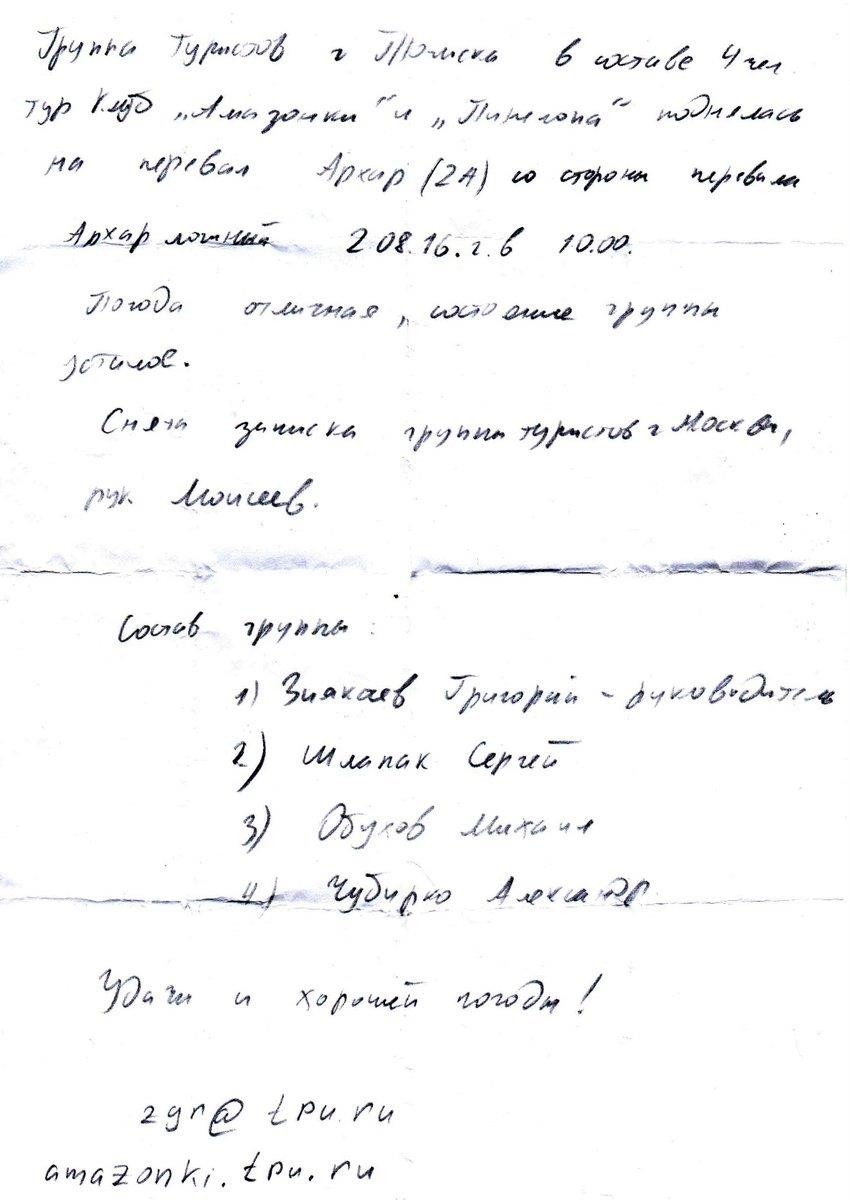 Группа Туристов г Томска в составе 4 чел
тур клуб „Амазонки" и „Пилигрим" поднялась
на перевал Архар (2А) со стороны перевала
Архар ложный 2 08.16.г. в 10.00.
Погода отличная, состояние группы
Снята записка группы туристов г Москвы,
рук Моисеев.
Состав группы:
1) Зиякаев Григорий - руководитель
2) Шлапак Сергей
3) Обухов Михаил
4) Чубирко Александр
Удачи и хорошей погоды!
zgr@tpu.ru
amazonki.tpu.ru